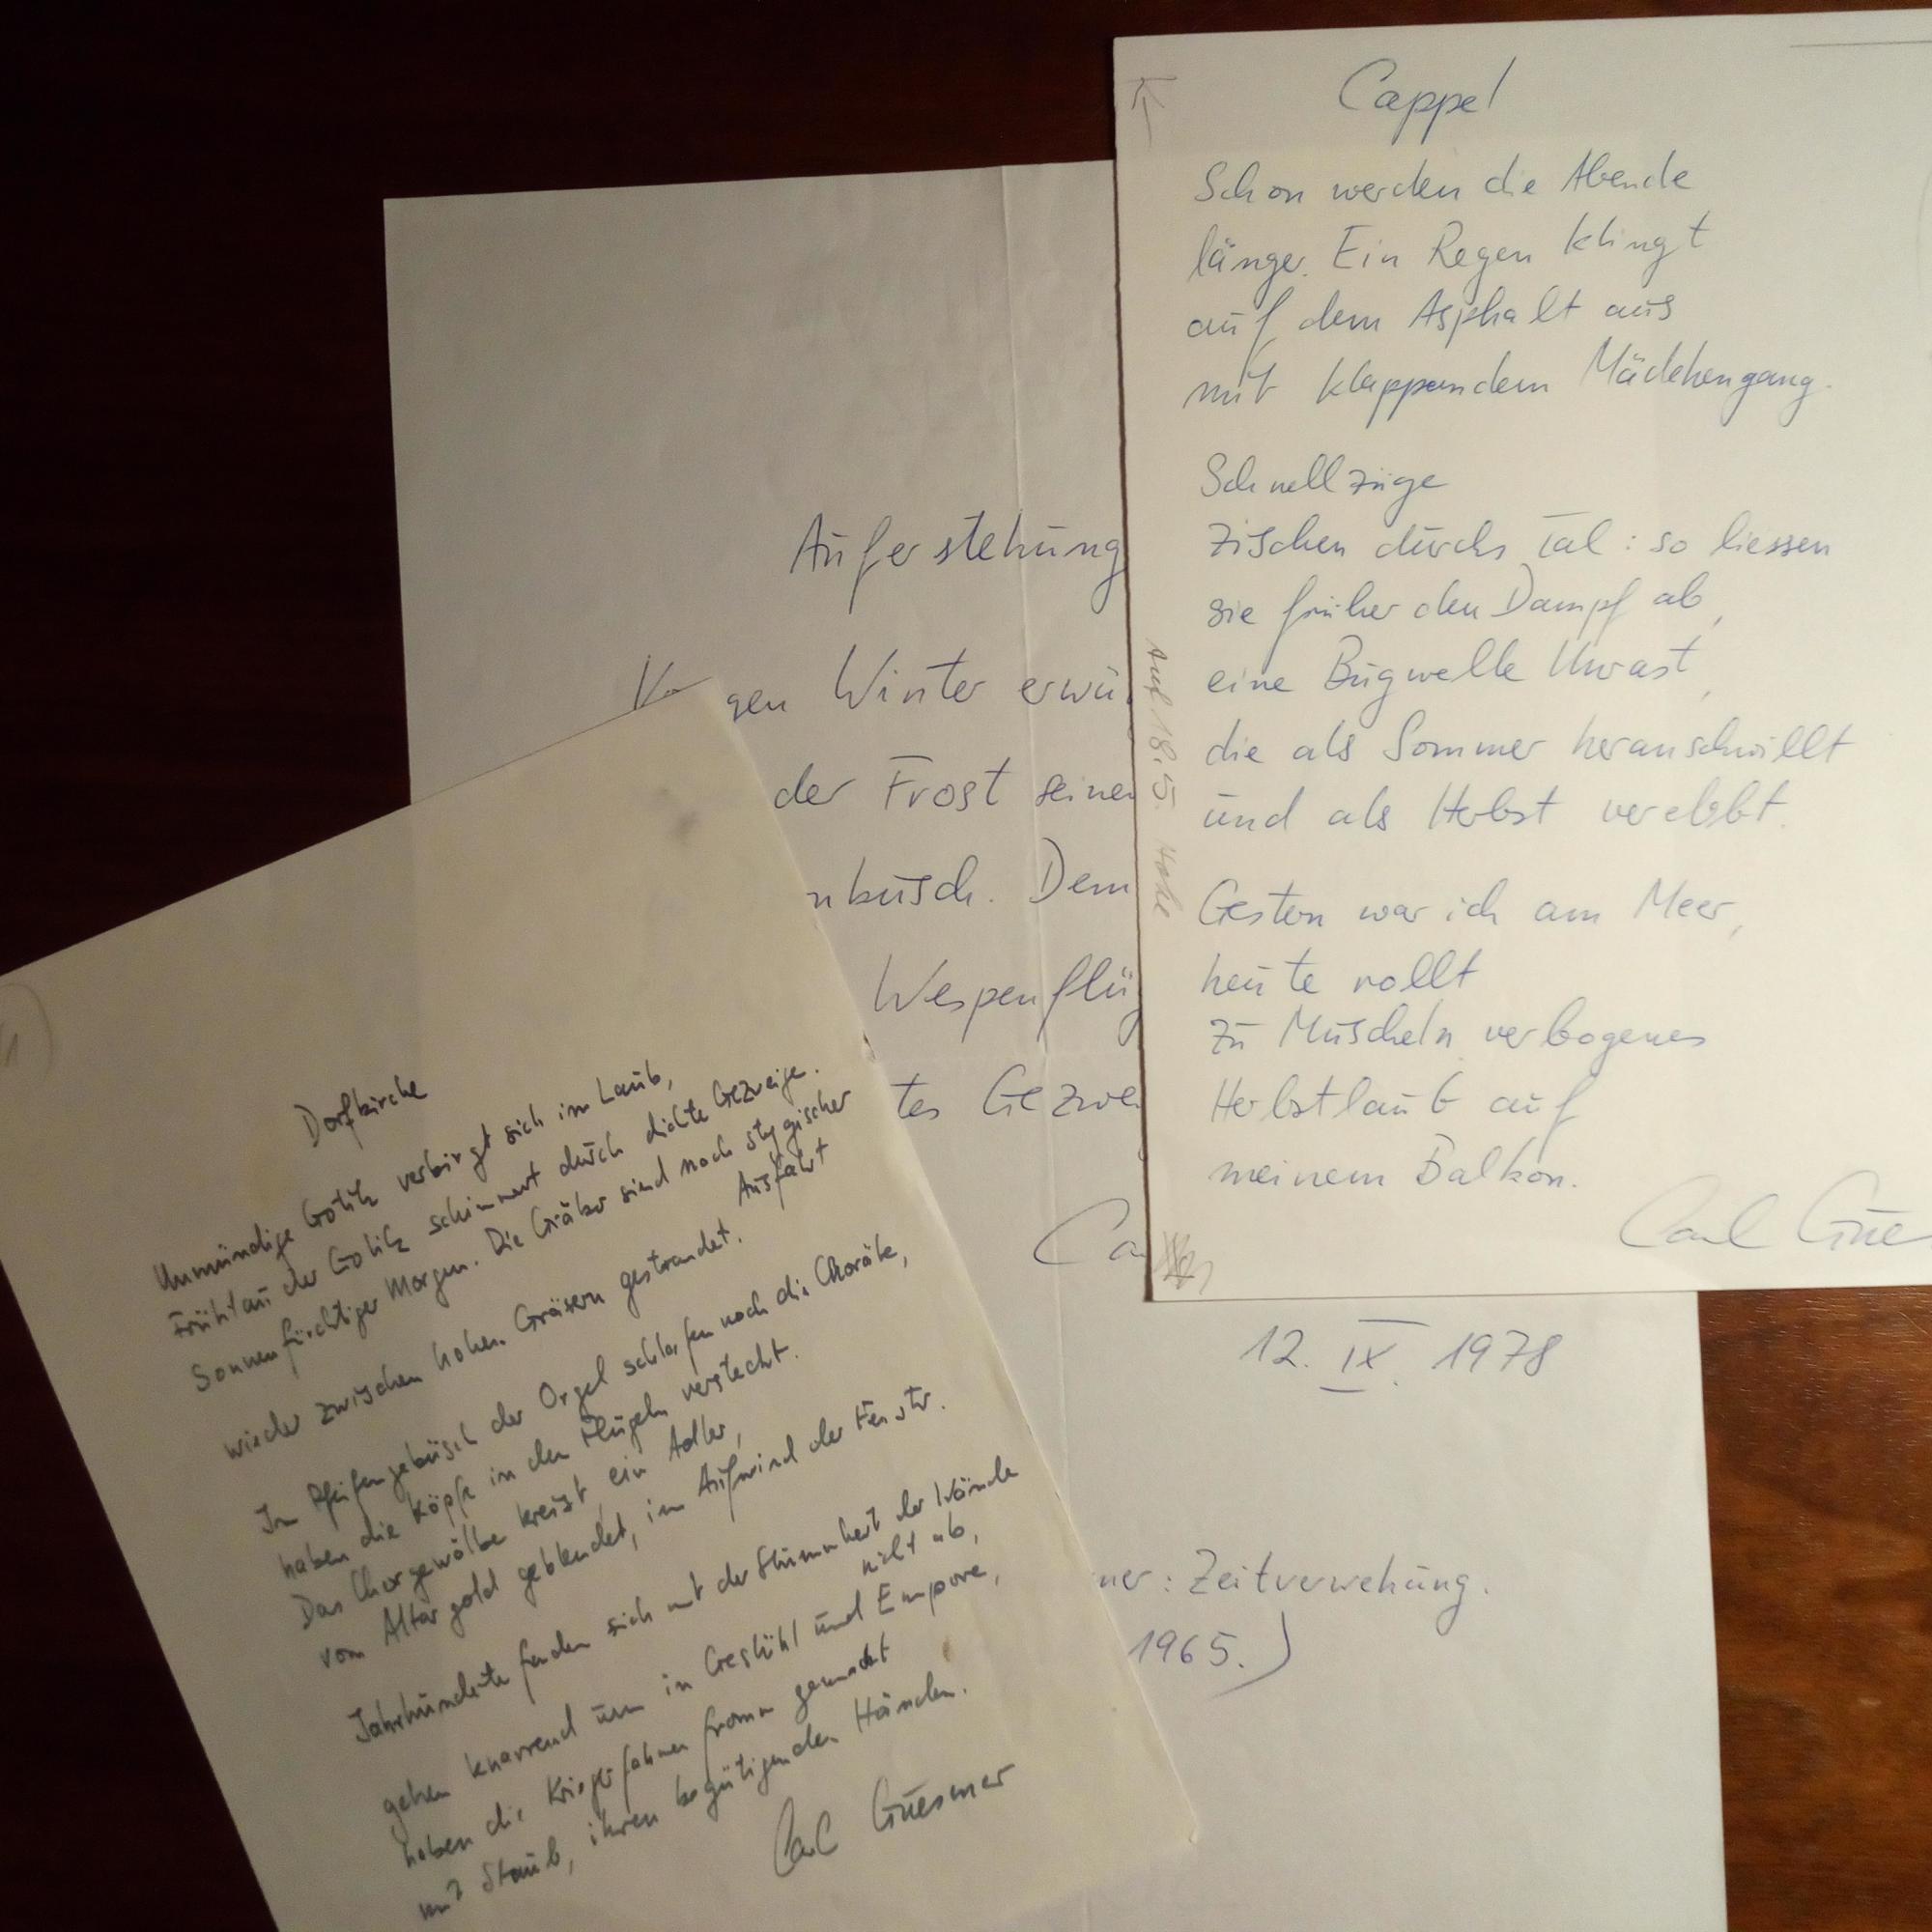 Cappel
Schon werden die Abende
länger. Ein Regen klingt
auf dem Asphalt aus
mit klappendem Mädchengang.
Schnellzüge
zischen durchs Tal: so liessen
sie früher den Dampf ab,
eine Bugwelle Unrast,
die als Sommer heranschwillt
und als Herbst verebbt.
Gestern war ich am Meer,
heute rollt
zu Muscheln verbogenes
Herbstlaub auf
meinem Balkon.
Carl Gue
Auf 18,5. Höhe
Auferstehung
gen Winter erwü
der Frost seinen
nbusch. Dem
Wespenflü
tes Gezwe
Ca
12. IX. 1978
ner: Zeitverwehung.
1965.)
Dorfkirche
Unmündige Gotik verbirgt sich im Laub,
Frühtau der Gotik schimmert durch dichte Gezweige.
Sonnenfürchtiger Morgen. Die Gräber sind nach stygischer
Ausfahrt
wieder zwischen hohen Gräsern gestrandet.
Im Pfeifengebüsch der Orgel schlafen noch die Choräle,
haben die Köpfe in den Flügeln versteckt.
Das Chorgewölbe kreist, ein Adler,
vom Altargold geblendet, im Aufwind der Fenster.
Jahrhunderte finden sich mit der Stummheit der Wände
nicht ab,
gehen knarrend um in Gestühl und Empore,
haben die Kriegerfahnen fromm gemacht
mit Staub, ihren begütigenden Händen.
Carl Guesmer